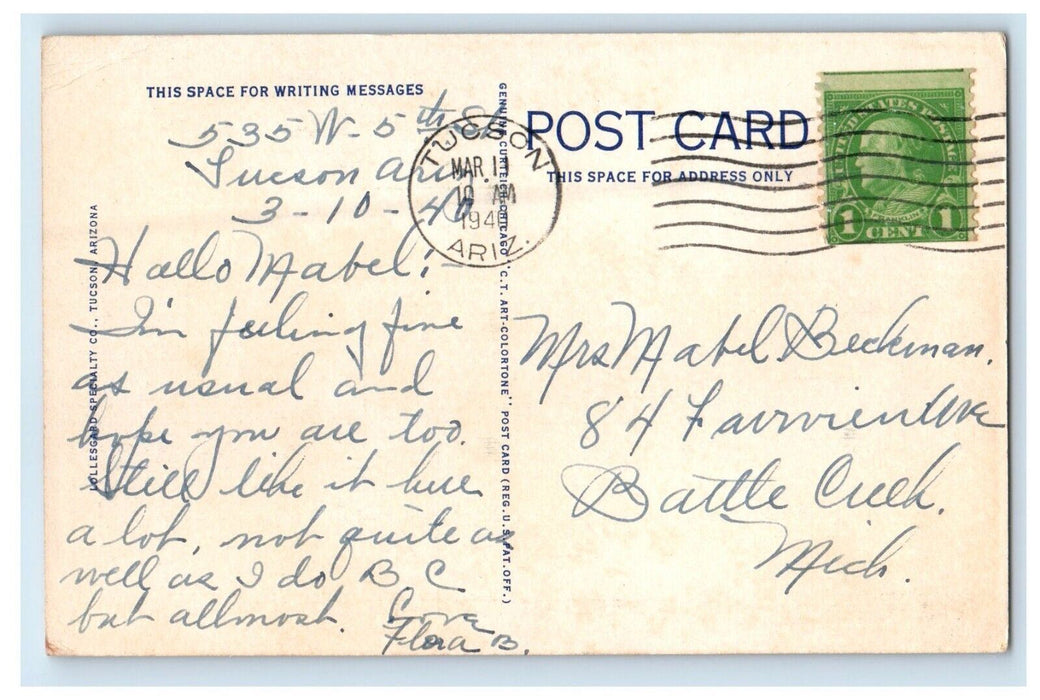 THIS SPACE FOR WRITING MESSAGES
535 W- 5th St
Tucson Ariz
3-10-40
Hallo Mabel:-
I'm feeling fine
as usual and
hope you are too.
Still like it here
a lot, not quite as
well as I do B C
but allmost. Love
Flora B.
LOLLESGARD SPECIALTY CO., TUCSON, ARIZONA
GENUINE CURTEICH-CHICAGO "C.T. ART-COLORTONE" POST CARD (REG. U.S. PAT. OFF.)
TUCSON
MAR 11
10 AM
1940
ARIZ.
POST CARD
THIS SPACE FOR ADDRESS ONLY
UNITED STATES POSTAGE
FRANKLIN
1 CENT 1
Mrs Mabel Beckman.
84 Fairview Ave
Battle Creek.
Mich.